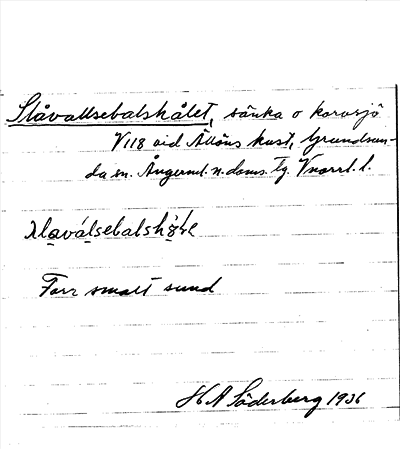 Slåvallsebalskålet, sänka o korvsjö
V118 vid Ällöns kust, Grundsun-
da sn. Ångerml. n. doms. Tg. Vnorrl. l.
Förr smalt sund
H A Söderberg 1936